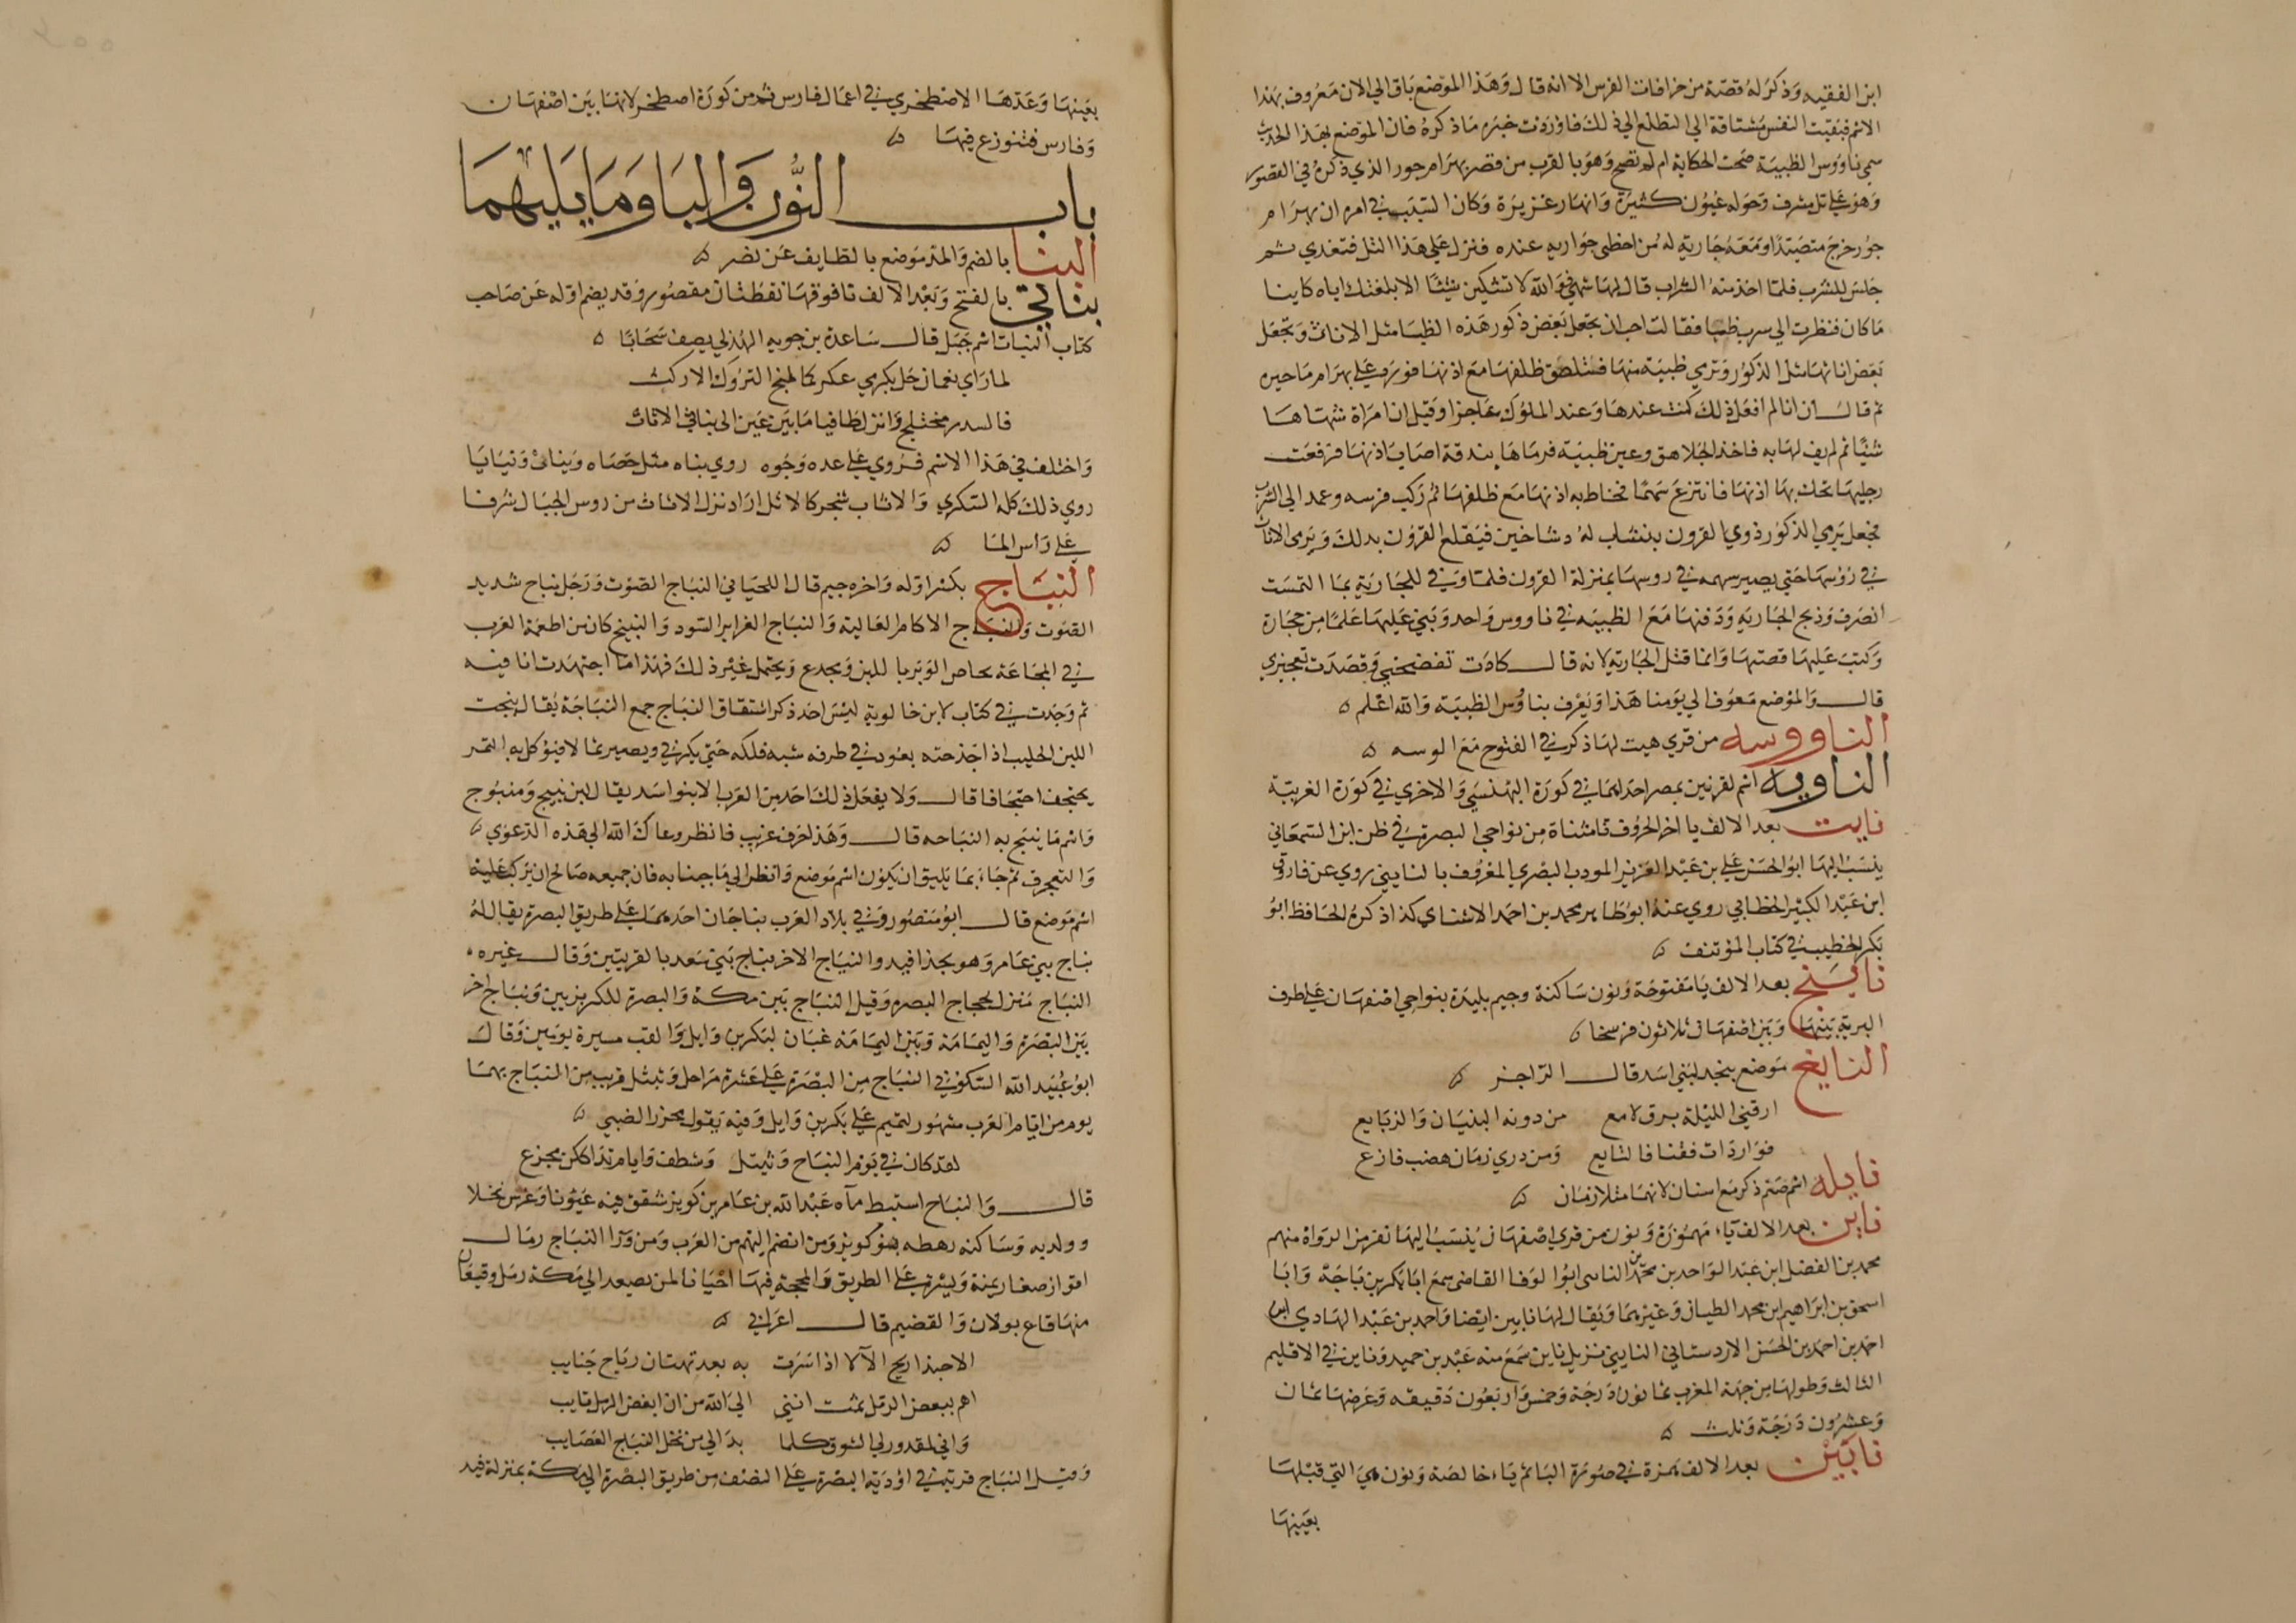 ابن الفقيه وذكر له قصة من خرافات الفرس الا انه قال وهذا الموضع باق الي الان معروف بهذا
الاسم فبقيت النفس مشتاقة الي التطلع الي ذلك فاوردت خبره ما ذكره فان الموضع بهذا الحديث
سمي ناووس الظبية صحت الحكاية ام لم تصح وهو بالقرب من قصر بهرام جور الذي ذكره في القصور
وهو علي تل مشرف وحوله عيون كثيرة وانهار غزيرة وكان السبب في امره ان بهرام
جور خرج متصيدا ومعه جارية له من احظي جواريه عنده فنزل علي هذا التل فتغدي ثم
جلس للشرب فلما اخذ منه الشراب قال لها تشهي فوالله لا تشتكين شيئا الا بلغتك اياه كاينا
ما كان فنظرت الي سرب ظبا فقالت احب ان تجعل بعض ذكور هذه الظبا مثل الاناث وتجعل
بعض اناثها مثل الذكور وترمي ظبية منها فتلصق ظلفها مع اذنها فورد علي بهرام ما حيره
ثم قال ان انا لم افعل ذلك كنت عندها وعند الملوك عاجزا وقيل ان امراة شهاها
شيئا ثم لم يف لها به فاخذ الجلاهق وعين ظبية فرماها ببندقة اصاب اذنها فرفعت
رجلها تحك بها اذنها فانتزع سهما فخاط به اذنها مع ظلفها ثم ركب فرسه وعمد الي السرب
فجعل يرمي الذكور ذوي القرون بنشاب له دشاخين فيقلع القرون بذلك ويرمي الاناث
في رؤسها حتي يصير سهمه في روسها بمنزلة القرون فلما وفي للجارية بما التمست
انصرف وذبح الجارية ودفنها مع الظبية في ناووس واحد وبني عليها علما من حجارة
وكتب عليها قصتها وانما قتل الجارية لانه قال كادت تفضحني وقصدت تعجيزي
قال والموضع معروف الي يومنا هذا ويعرف بناوس الظبية والله اعلم ه
الناووسه من قري هيت لها ذكر في الفتوح مع الوسه ه
الناويه اسم لقريتين بمصر احداهما في كورة البهنسي والاخري في كورة الغربية
نايت بعد الالف يا اخر الحروف تا مثناة من نواحي البصرة في ظن ابن السمعاني
ينسب اليها ابو الحسن علي بن عبد العزيز المودب البصري المعروف بالنايتي روي عن فاروق
ابن عبد الكبير الخطابي روي عنه ابو طاهر محمد بن احمد الاشناي كذا ذكره الحافظ ابو
بكر الخطيب في كتاب المؤتنف ه
ناينج بعد الالف يا مفتوحة ونون ساكنة وجيم بليدة بنواحي اصفهان علي طرف
البرية بينها وبين اصفهان ثلاثون فرسخا ه
النايع موضع بنجد لبني اسد قال الراجز ه
ارقني الليلة برق لامع من دونه البنيان والزبايع
فواردات فقنا فالنايع ومن دري زمان هضب فازع
نايله اسم صنم ذكر مع اسنان لانهما متلازمان ه
ناين بعد الالف ياء مهموزة ونون من قري اصفهان ينسب اليها نفر من الرواة منهم
محمد بن الفضل ابن عبد الواحد بن محمد النائني ابو الوفا القاضي سمع ابا بكر بن باجة وابا
اسحق بن ابراهيم ابن محمد الطيان وغيرهما ويقال لها نايين ايضا واحمد بن عبد الهادي ابن
احمد بن احمد بن الحسن الاردستاني النايني نزيل ناين سمع منه عبد بن حميد وناين في الاقليم
الثالث وطولها من جهة المغرب ثمانون درجة وخمس واربعون دقيقه وعرضها ثمان
وعشرون درجة وثلث ه
نايين بعد الالف همزة في صورة اليا ثم ياء خالصة ونون هي التي قبلها
بعينها
بعينها وعدها الاصطخري في اعمال فارس ثم من كورة اصطخر لانها بين اصفهان
وفارس فتنوزع فيها ه
باب النون والبا وما يليهما
النبا بالضم والمد موضع بالطايف عن نصر ه
نباتي بالفتح وبعد الالف تا فوقها نقطتان مقصور وقد يضم اوله عن صاحب
كتاب النبات اسم جبل قال ساعدة بن جويه الهذلي يصف سحابا ه
لما راي نعمان حل بكرفي عكر كما لبج النزول الاركب
فالسدر مختلج وانزل طافيا ما بين عين الي نباتي الاثاب
واختلف في هذا الاسم فروي علي عده وجوه روي نباه مثل حصاه ونباتي ونبايا
روي ذلك كله السكري والاثاب شجر كالاثل اراد نزل الاثاب من روس الجبال شرفا
علي راس الما ه
النباج بكسر اوله واخره جيم قال اللحياني النباج الصوت ورجل نباج شديد
الصوت والنباج الاكام العالية والنباج الغراير السود والنبيج كان من اطعمة العرب
في المجاعة يخاض الوبر باللبن ويجدع ويحتمل غير ذلك فهذا ما اجتهدت انا فيه
ثم وجدت في كتاب لابن خالويه ليس احد ذكر اشتقاق النباج جمع النباجة يقال نبجت
اللبن الحليب اذا جدحته بعود في طرفه شبه فلكه حتي يكرفي ويصير ثمالا فيؤكل به التمر
يجتحف اجتحافا قال ولا يفعل ذلك احد من العرب الا بنو اسد يقال لبن نبيج ومنبوج
واسم ما ينبج به النباجه قال وهذا حرف غريب فانظر رعاك الله الي هذه الدعوي ه
والتعجرف ثم جاء بما يليق ان يكون اسم موضع وانظر الي ما جئنا به فان جميعه صالح ان يركب عليه
اسم موضع قال ابو منصور وفي بلاد العرب نباجان احدهما علي طريق البصرة يقال له
نباج بني عامر وهو بحذا فيد والنباج الاخر نباج بني سعد بالقريتين وقال غيره
النباج منزل لحجاج البصره وقيل النباج بين مكة والبصرة للكريزيين ونباج اخر
بين البصرة واليمامة وبين اليمامة غبان لبكر بن وايل والغب مسيرة يومين وقال
ابو عبيد الله السكوني النباج من البصرة علي عشرة مراحل وثيتل قريب من النباج بهما
يوم من ايام العرب مشهور لتميم علي بكر بن وايل وفيه يقول محرز الضبي ه
لقد كان في يوم النباج وثيتل وشطف وايام تداكان مجزع
قال والنباج استنبط ماه عبد الله بن عامر بن كريز شقق فيه عيونا وغرس نخلا
وولد به وساكنه رهطه بنو كويز ومن انضم اليهم من العرب ومن ورا النباج رمال
اقواز صغار يمنة ويسرة علي الطريق والمحجة فيها احيانا لمن يصعد الي مكة رمل وقيعان
منها قاع بولان والقصيم قال اعرابي ه
الا حبذا ريح الالا اذا سرت به بعد تهتان رياح جنايب
اهم ببغض الرمل ثمت انني الي الله من ان ابغض الرمل تايب
واني لمقدور لي الشوق كلما بدا لي من نخل النباج العصايب
وقيل النباج قرية في اودية البصرة علي النصف من طريق البصرة الي مكة بمنزلة فيد